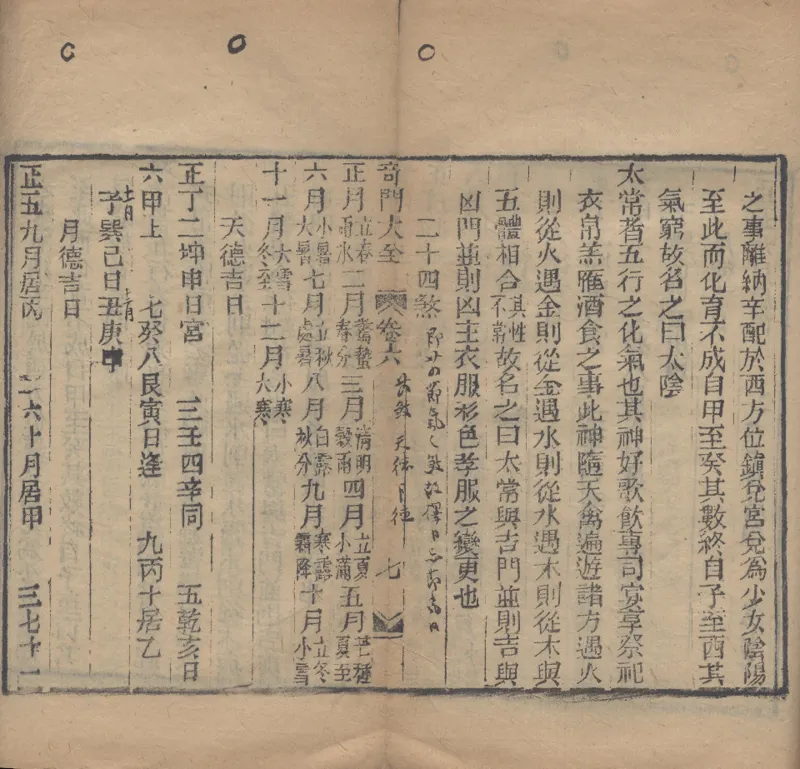 之事離納辛配於西方位鎮兌宮兌為少女陰陽
至此而化育不成自甲至癸其數終自子至酉其
氣窮故名之曰太陰
太常者五行之化氣也其神好歌飲專司宴享祭祀
衣帛羔雁酒食之事此神隨天禽遍遊諸方遇火
則從火遇金則從金遇水則從水遇木則從木與
五體相合其性不常故名之曰太常與吉門並則吉與
凶門並則凶主衣服衫色孝服之變更也
二十四煞
奇門大全 卷六 七
正月立春雨水二月驚蟄春分三月清明穀雨四月立夏小滿五月芒種夏至
六月小暑大暑七月立秋處暑八月白露秋分九月寒露霜降十月立冬小雪
十一月大雪冬至十二月小寒大寒
天德吉日
正丁二坤申日宮 三壬四辛同 五乾亥日
六甲上 七癸八艮寅日逢 九丙十居乙
子巽己日丑庚中
月德吉日
正五九月居丙 二六十月居甲 三七十一